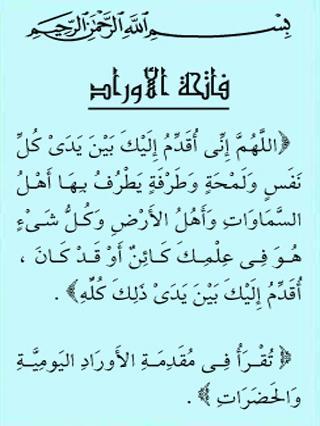 بِسْمِ اللَّهِ الرَّحْمَٰنِ الرَّحِيمِ
فاتحة الأوراد
﴿اللَّهُمَّ إِنِّى أُقَدِّمُ إِلَيْكَ بَيْنَ يَدَىْ كُلِّ
نَفَسٍ وَلَمْحَةٍ وَطَرْفَةٍ يَطْرُفُ بِهَا أَهْلُ
السَّمَاوَاتِ وَأَهْلُ الأَرْضِ وَكُلُّ شَىْءٍ
هُوَ فِى عِلْمِكَ كَائِنٌ أَوْ قَدْ كَانَ ،
أُقَدِّمُ إِلَيْكَ بَيْنَ يَدَىْ ذَلِكَ كُلِّهِ﴾ .
﴿ تُقْرَأُ فِى مُقَدِّمَةِ الأَوْرَادِ اليَوْمِيَّةِ
وَالحَضَرَاتِ ﴾ .